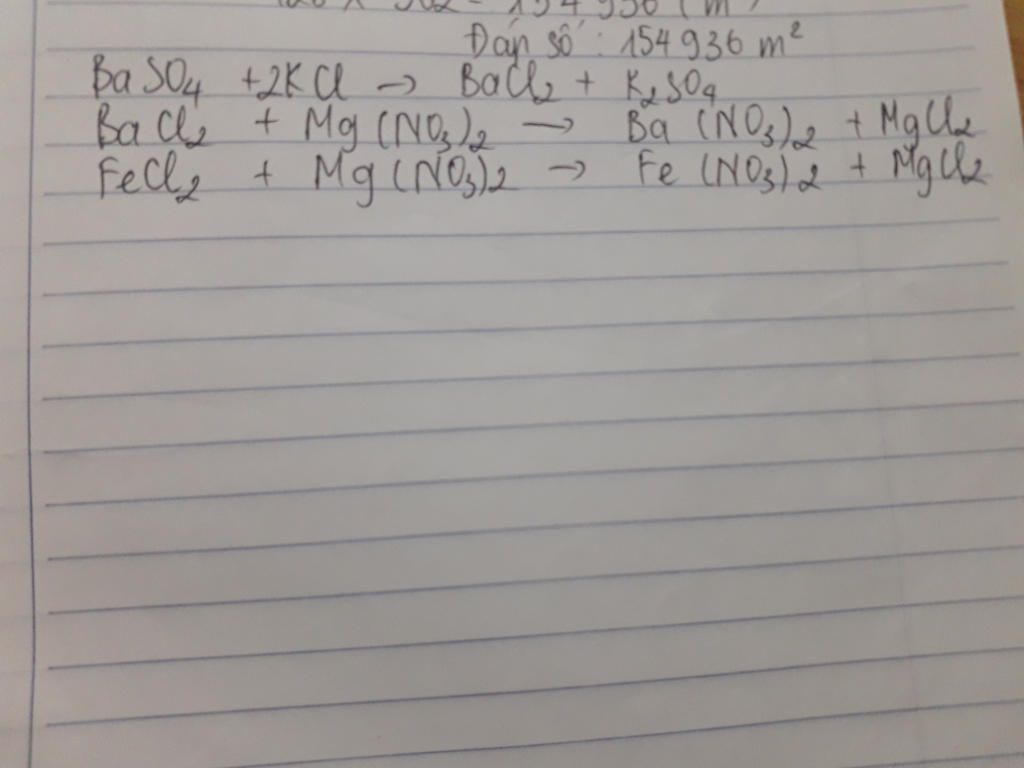 154936 (m
Đáp số : 154936 m²
BaSO₄ +2KCl → BaCl₂ + K₂SO₄
BaCl₂ + Mg(NO₃)₂ → Ba (NO₃)₂ + MgCl₂
FeCl₂ + Mg(NO₃)₂ → Fe (NO₃)₂ + MgCl₂